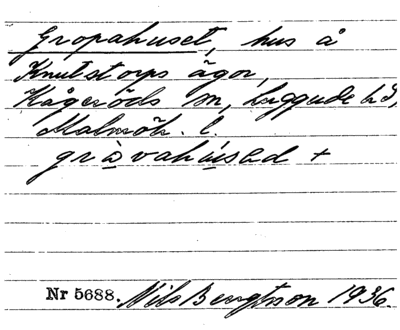 Gropahuset, hus å
Knutstorps ägor,
Kågeröds sn, Luggude hd,
Malmöh. l.
gràvahúsəd +
Nr 5688. Nils Bengtsson 1936.